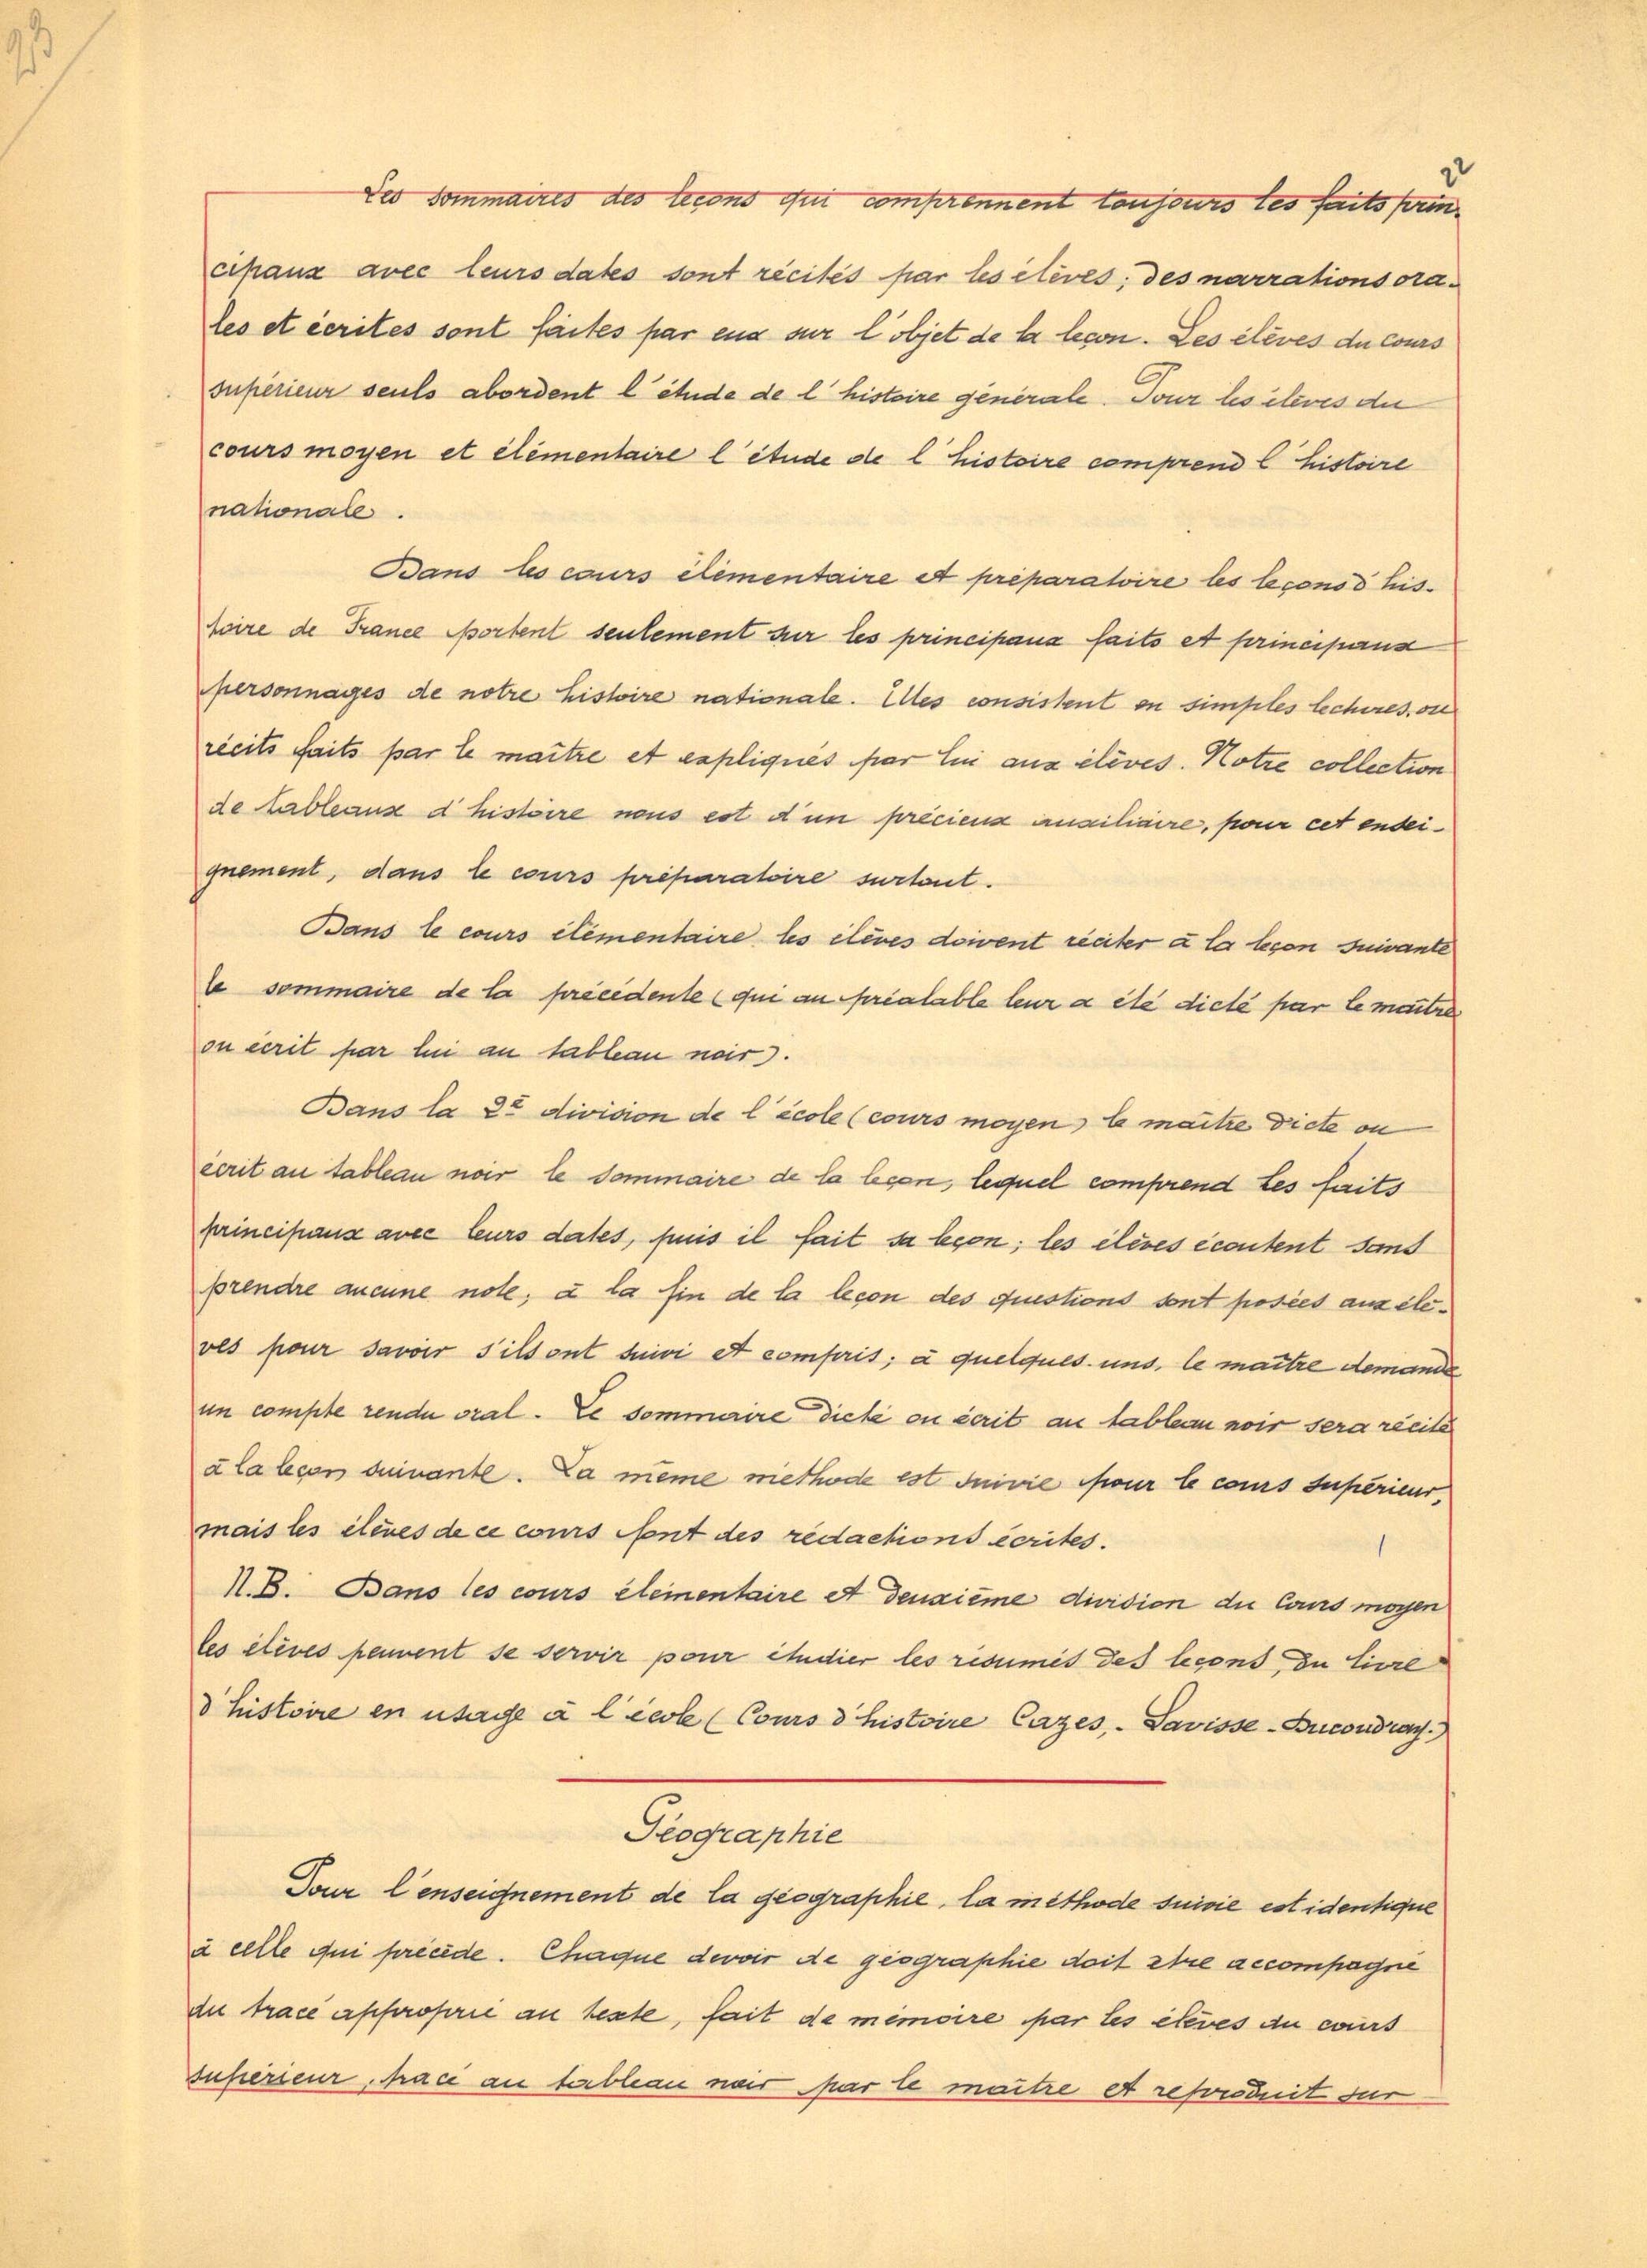 22
Les sommaires des leçons qui comprennent toujours les faits prin-
cipaux avec leurs dates sont récités par les élèves; des narrations ora-
les et écrites sont faites par eux sur l'objet de la leçon. Les élèves du cours
supérieur seuls abordent l'étude de l'histoire générale. Pour les élèves du
cours moyen et élémentaire l'étude de l'histoire comprend l'histoire
nationale.
Dans les cours élémentaire et préparatoire les leçons d'his-
toire de France portent seulement sur les principaux faits et principaux
personnages de notre histoire nationale. Elles consistent en simples lectures, ou
récits faits par le maître et expliqués par lui aux élèves. Notre collection
de tableaux d'histoire nous est d'un précieux auxiliaire, pour cet ensei-
gnement, dans le cours préparatoire surtout.
Dans le cours élémentaire les élèves doivent réciter à la leçon suivante
le sommaire de la précédente (qui au préalable leur a été dicté par le maître
ou écrit par lui au tableau noir).
Dans la 2e division de l'école (cours moyen) le maître dicte ou
écrit au tableau noir le sommaire de la leçon, lequel comprend les faits
principaux avec leurs dates, puis il fait sa leçon; les élèves écoutent sans
prendre aucune note; à la fin de la leçon des questions sont posées aux élè-
ves pour savoir s'ils ont suivi et compris; à quelques-uns, le maître demande
un compte rendu oral. Le sommaire dicté ou écrit au tableau noir sera récité
à la leçon suivante. La même méthode est suivie pour le cours supérieur,
mais les élèves de ce cours font des rédactions écrites.
N.B. Dans les cours élémentaire et deuxième division du Cours moyen
les élèves peuvent se servir pour étudier les résumés des leçons, du livre
d'histoire en usage à l'école (Cours d'histoire Cazes, - Lavisse - Ducoudray.)
Géographie
Pour l'enseignement de la géographie, la méthode suivie est identique
à celle qui précède. Chaque devoir de géographie doit être accompagné
du tracé approprié au texte, fait de mémoire par les élèves du cours
supérieur, tracé au tableau noir par le maître et reproduit sur